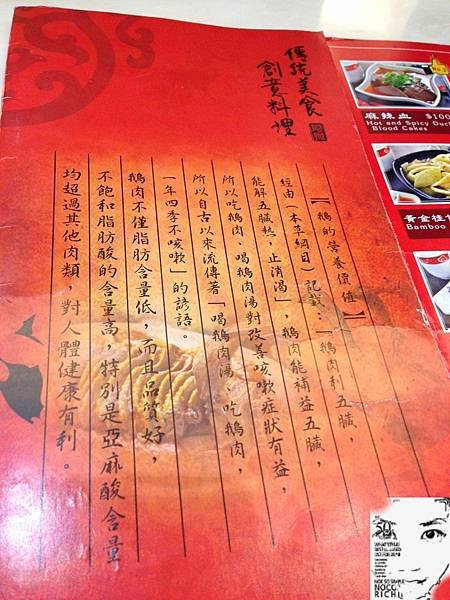 傳統美食
創意料理
【鵝的營養價值】
經由(本草綱目)記載:「鵝肉利五臟,
能解五臟熱,止消渴」,鵝肉能補益五臟,
所以吃鵝肉、喝鵝肉湯對改善咳嗽症狀有益,
所以自古以來流傳著「喝鵝肉湯、吃鵝肉,
一年四季不咳嗽」的諺語。
鵝肉不僅脂肪含量低,而且品質好,
不飽和脂肪酸的含量高,特別是亞麻酸含量
均超過其他肉類,對人體健康有利。
麻辣血 $100
Hot and Spicy Duck
Blood Cakes
黃金桂
Bamboo
NOCO
RICH